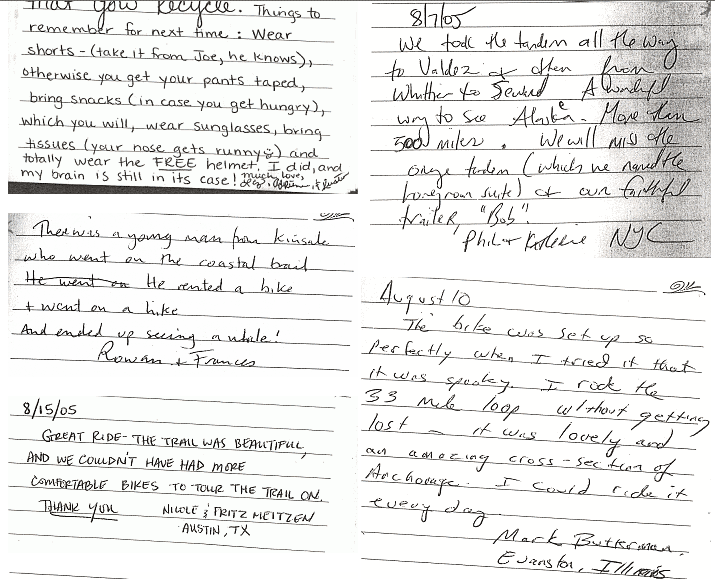 that you recycle. Things to
remember for next time: Wear
shorts - (take it from Joe, he knows),
otherwise you get your pants taped,
bring snacks (in case you get hungry),
which you will, wear sunglasses, bring
tissues (your nose gets runny) and
totally wear the FREE helmet. I did, and
my brain is still in its case! much love,
There was a young man from Kinsale
who went on the coastal trail
He went on He rented a bike
+ went on a hike
And ended up seeing a whale!
Rowan + Frances
8/15/05
GREAT RIDE - THE TRAIL WAS BEAUTIFUL,
AND WE COULDN'T HAVE HAD MORE
COMFORTABLE BIKES TO TOUR THE TRAIL ON.
THANK YOU NICOLE & FRITZ MEITZEN
AUSTIN, TX
8/7/05
We took the tandem all the way
to Valdez often from
Whittier to Seward A wonderful
way to see Alaska. More than
500 miles. We will miss the
orange tandem (which we named the
honeymoon suite) our faithful
trailer, "Bob".
NYC
August 10
The bike was set up so
perfectly when I tried it that
it was spooky. I rode the
33 mile loop without getting
lost - it was lovely and
an amazing cross-section of
Anchorage. I could ride it
every day
Mark Butterman,
Evanston, Illinois